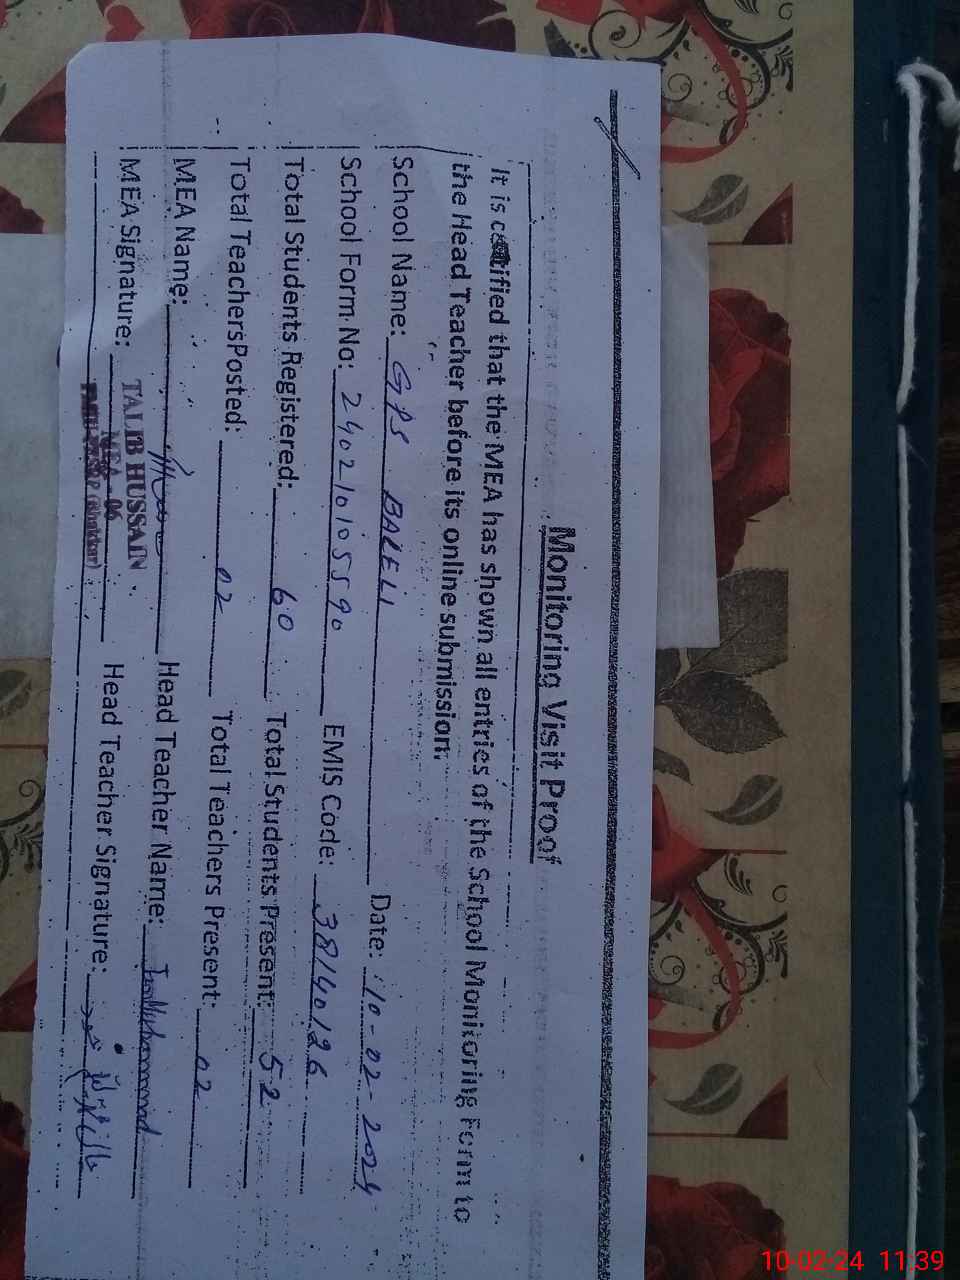 Monitoring Visit Proof
It is certified that the MEA has shown all entries of the School Monitoring Form to
the Head Teacher before its online submission.
School Name: GPS BALELI Date: 10-02-2024
School Form No: 240210105590 EMIS Code: 38140126
Total Students Registered: 60 Total Students Present: 52
Total Teachers Posted: 02 Total Teachers Present: 02
MEA Name: Head Teacher Name:
MEA Signature: TALIB HUSSAIN Head Teacher Signature:
MEA - 06
(Bhakkar)
10-02-24 11:39